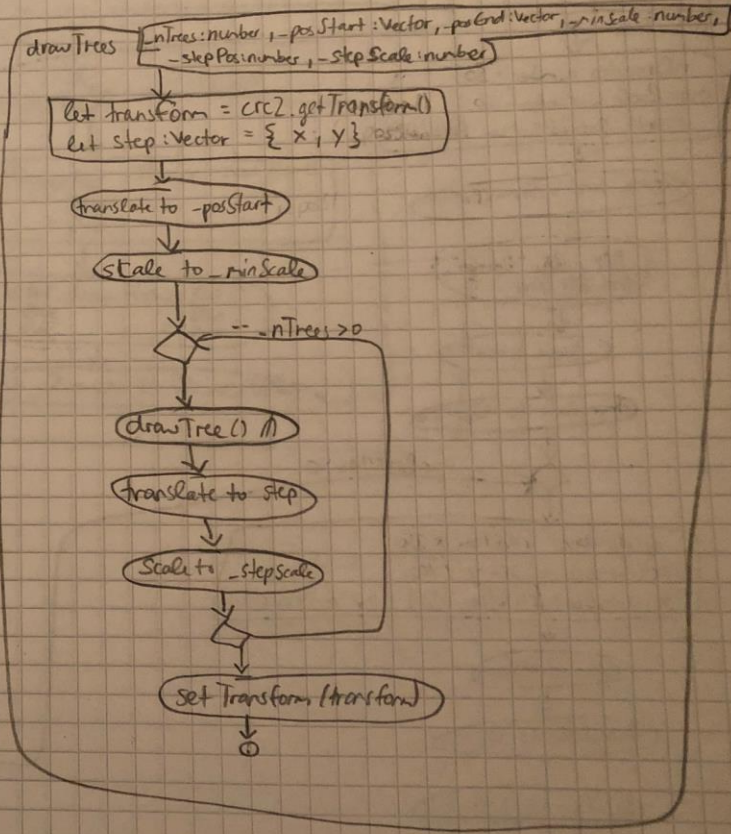 drawTrees
_nTrees:number, _posStart:Vector, _posEnd:Vector, _minScale:number,
_stepPos:number, _stepScale:number
let transform = crc2.getTransform()
let step:Vector = { x, y }
translate to _posStart
scale to _minScale
-- _nTrees > 0
drawTree()
translate to step
Scale to _stepScale
set Transform (transform)